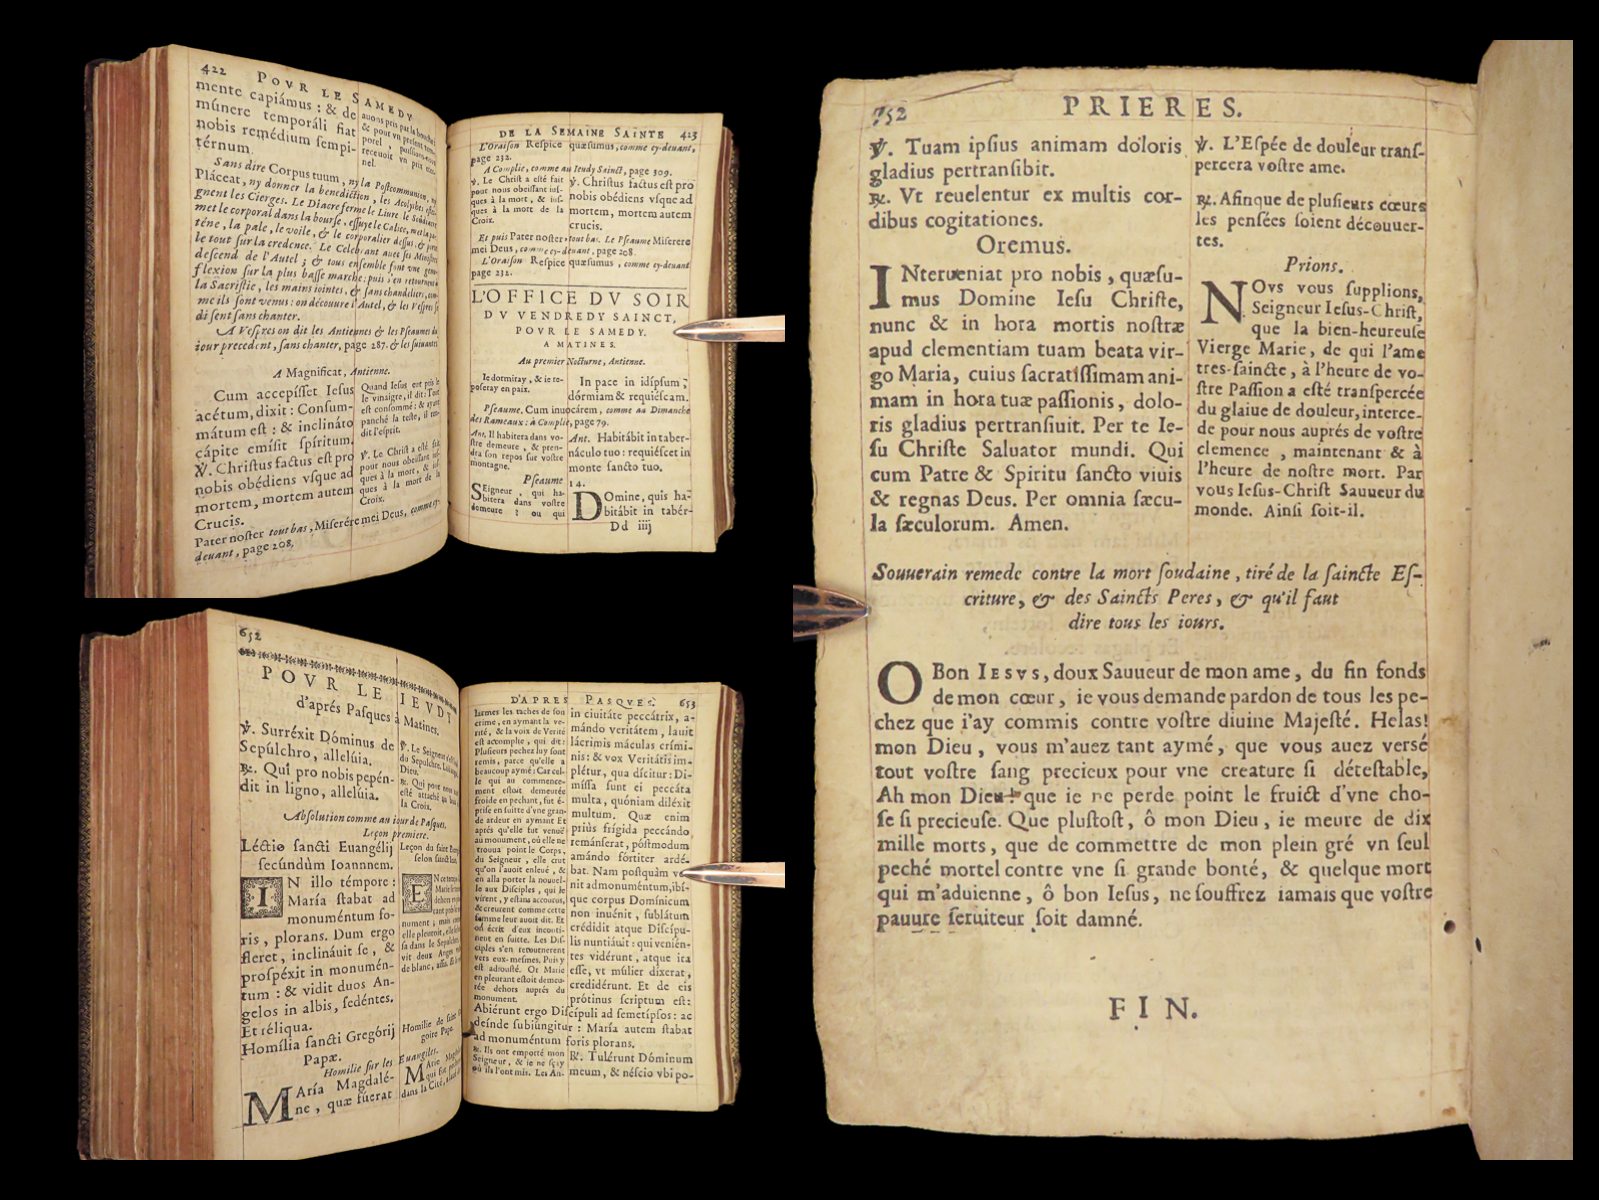 422 POVR LE SAMEDY
mente capiámus : & de
múnere temporáli fiat
nobis remédium sempi-
térnum.
auons pris par la bouche,
& pour vn present tem-
porel,
receuoir vn prix eter-
nel.
Sans dire Corpus tuum, ny la Postcommunion, ny
Pláceat, ny donner la benediction, les Acolythes estei-
gnent les Cierges. Le Diacre ferme le Liure, le Sousdiacre
met le corporal dans la bourse, essuye le Calice, met la pa-
téne, la pale, le voile, & le corporalier dessus, & porte
le tout sur la credence. Le Celebrant auec ses Ministres
descend de l'Autel ; & tous ensemble font vne genu-
flexion sur la plus basse marche: puis s'en retournent à
la Sacristie, les mains iointes, & sans chandeliers, com-
me ils sont venus : on découure l'Autel, & les Vespres se
disent sans chanter.
A Vespres on dit les Antiennes & les Pseaumes du
iour precedent, sans chanter, page 287. & les suiuantes
A Magnificat, Antienne.
Cum accepísset Iesus
acétum, dixit : Consum-
mátum est : & inclináto
cápite emísit spíritum.
℣. Christus factus est pro
nobis obédiens vsque ad
mortem, mortem autem
Crucis.
Quand Iesus eut pris le
le vinaigre, il dit : Tout
est consommé : & ayant
panché la teste, il ren-
dit l'esprit.
℣. Le Christ a esté fait
pour nous obeïssant ius-
ques à la mort, & ius-
ques à la mort de la
Croix.
Pater noster tout bas, Miserére mei Deus, comme cy-
deuant, page 208.
DE LA SEMAINE SAINTE 423
L'Oraison Respice quæsumus, comme cy-deuant,
page 232.
A Complie, comme au Ieudy Sainct, page 309.
℣. Le Christ a esté fait
pour nous obeïssant ius-
ques à la mort, & ius-
ques à la mort de la
Croix.
℣. Christus factus est pro
nobis obédiens vsque ad
mortem, mortem autem
crucis.
Et puis Pater noster tout bas. Le Pseaume Miserere
mei Deus, comme cy-deuant, page 208.
L'Oraison Respice quæsumus, comme cy-deuant
page 232.
L'OFFICE DV SOIR
DV VENDREDY SAINCT,
POVR LE SAMEDY.
A MATINES.
Au premier Nocturne, Antienne.
Ie dormiray, & ie re-
poseray en paix.
In pace in idípsum ;
dórmiam & requiéscam.
Pseaume. Cum inuocárem, comme au Dimanche
des Rameaux : à Complie, page 79.
Ant. Il habitera dans vo-
stre demeure, & pren-
dra son repos sur vostre
montagne.
Ant. Habitábit in taber-
náculo tuo : requiéscet in
monte sancto tuo.
Pseaume 14.
SEigneur, qui ha-
bitera dans vostre
demeure ? ou qui
DOmine, quis ha-
bitábit in tabér-
Dd iiij
652
POVR LE IEVDY
d'aprés Pasques à Matines.
℣. Surréxit Dóminus de
Sepúlchro, allelúia.
℟. Qui pro nobis pepén-
dit in ligno, allelúia.
℣. Le Seigneur
du Sepulchre,
Dieu.
℟. Qui pour nous
esté attaché au bois
la Croix.
Absolution comme au iour de Pasques.
Leçon premiere.
Léctio sancti Euangélij
secundùm Ioannnem.
Leçon du saint Euan-
selon sainct Iean.
IN illo témpore :
María stabat ad
monuméntum fo-
ris, plorans. Dum ergo
fleret, inclináuit se, &
prospéxit in monumén-
tum : & vidit duos An-
gelos in albis, sedéntes.
Et réliqua.
EN ce temps
Marie
dehors
nument ; mais
elle pleuroit, elle
sa dans le Sepulchre
vit deux Anges
de blanc, assis.
Homília sancti Gregórij
Papæ.
Homilie de saint
goire Pape.
Homilie sur les Euangiles.
MAría Magdalé-
ne, quæ fúerat
MArie
qui
dans la Cité,
D'APRES PASQVES. 653
larmes les taches de son
crime, en aymant la ve-
rité, & la voix de Verité
est accomplie, qui dit :
Plusieurs pechez luy sont
remis, parce qu'elle a
beaucoup aymé : Car cel-
le qui au commence-
ment estoit demeurée
froide en pechant, fut é-
prise en suitte d'vne gran-
de ardeur en aymant Et
aprés qu'elle fut venuë
au monument, où elle ne
trouua point le Corps,
du Seigneur, elle crut
qu'on l'auoit enleué, &
en alla porter la nouuel-
le aux Disciples, qui le
virent, y estans accourus,
& creurent comme cette
femme leur auoit dit. Et
on écrit d'eux inconti-
nent en suitte. Les Dis-
ciples s'en retournerent
vers eux-mesmes. Puis y
est adiousté. Or Marie
en pleurant estoit demeu-
rée dehors auprés du
monument.
in ciuitáte peccátrix, a-
mándo veritátem, lauit
lácrimis máculas crími-
nis : & vox Veritátis im-
plétur, qua dícitur : Di-
míssa sunt ei peccáta
multa, quóniam diléxit
multum. Quæ enim
priùs frígida peccándo
remánserat, póstmodum
amándo fórtiter ardé-
bat. Nam postquàm ve-
nit ad monuméntum, ibí-
que corpus Domínicum
non inuénit, sublátum
crédidit atque Discípu-
lis nuntiáuit : qui venién-
tes vidérunt, atque ita
esse, vt múlier dixerat,
credidérunt. Et de eis
prótinus scriptum est :
Abiérunt ergo Discípuli ad semetípsos : ac
deínde subiúngitur : María autem stabat
ad monuméntum foris plorans.
℟. Ils ont emporté mon
Seigneur, & ie ne sçay
où ils l'ont mis. Les An-
℟. Tulérunt Dóminum
meum, & néscio vbi po-
752 PRIERES.
℣. Tuam ipsius animam doloris
gladius pertransibit.
℟. Vt reuelentur ex multis cor-
dibus cogitationes.
Oremus.
INterueniat pro nobis, quæsu-
mus Domine Iesu Christe,
nunc & in hora mortis nostræ
apud clementiam tuam beata vir-
go Maria, cuius sacratissimam ani-
mam in hora tuæ passionis, dolo-
ris gladius pertransiuit. Per te Ie-
su Christe Saluator mundi. Qui
cum Patre & Spiritu sancto viuis
& regnas Deus. Per omnia sæcu-
la sæculorum. Amen.
℣. L'Espée de douleur trans-
percera vostre ame.
℟. Afin que de plusieurs cœurs
les pensées soient décou­uer-
tes.
Prions.
NOvs vous supplions,
Seigneur Iesus-Christ,
que la bien-heureuse
Vierge Marie, de qui l'ame
tres-saincte, à l'heure de vo-
stre Passion a esté transpercée
du glaiue de douleur, interce-
de pour nous auprés de vostre
clemence, maintenant & à
l'heure de nostre mort. Par
vous Iesus-Christ Sauueur du
monde. Ainsi soit-il.
Souuerain remede contre la mort soudaine, tiré de la saincte Es-
criture, & des Saincts Peres, & qu'il faut
dire tous les iours.
O Bon IESVS, doux Sauueur de mon ame, du fin fonds
de mon cœur, ie vous demande pardon de tous les pe-
chez que i'ay commis contre vostre diuine Majesté. Helas!
mon Dieu, vous m'auez tant aymé, que vous auez versé
tout vostre sang precieux pour vne creature si détestable,
Ah mon Dieu ! que ie ne perde point le fruict d'vne cho-
se si precieuse. Que plustost, ô mon Dieu, ie meure de dix
mille morts, que de commettre de mon plein gré vn seul
peché mortel contre vne si grande bonté, & quelque mort
qui m'aduienne, ô bon Iesus, ne souffrez iamais que vostre
pauure seruiteur soit damné.
FIN.